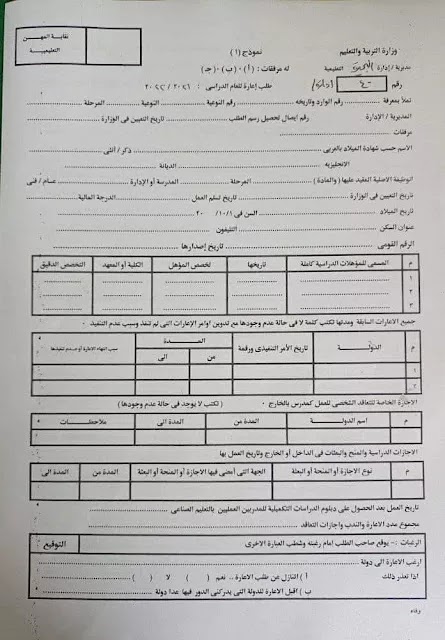 وزارة التربية والتعليم
مديرية / إدارة التعليمية
رقم ٤٠
نموذج (١)
له مرفقات : ( أ ) - ( ب ) - ( جـ )
طلب إعارة للعام الدراسى : ٢٠٢١ / ٢٠٢٢
نقابة المهن
التعليمية
تملأ بمعرفة رقم الوارد وتاريخه رقم النوعية النوعية المرحلة
المديرية / الإدارة رقم ايصال تحصيل رسم الطلب تاريخ التعيين فى الوزارة
مرفقات
الاسم حسب شهادة الميلاد بالعربى ذكر / أنثى
الانجليزيه الديانة
الوظيفة الاصلية المقيد عليها ( والمادة ) المرحلة المدرسة أو الإدارة عـام / فنى
تاريخ التعيين فى الوزارة تاريخ تسلم العمل الدرجة المالية
تاريخ الميلاد السن فى ١٠/١ / ٢٠
عنوان السكن التليفون
الرقم القومى تاريخ إصدارها
م المسمى للمؤهلات الدراسية كاملة تاريخها تخصص المؤهل الكلية أو المعهد التخصص الدقيق
١
٢
٣
جميع الاعارات السابقة ومدتها تكتب كلمة لا فى حالة عدم وجودها مع تدوين اوامر الإعارات التى لم تنفذ وسبب عدم التنفيذ
م الدولـــة تاريخ الأمر التنفيذى ورقمة المـــدة سبب انتهاء الاعارة أو عدم تنفيذها
من الى
١
٢
الاجازة الخاصة للتعاقد الشخصى للعمل كمدرس بالخارج ( تكتب لا يوجد فى حالة عدم وجودها )
م اسم الدولـــة المدة من المدة الى ملاحظـــات
الاجازات الدراسية والمنح والبعثات فى الداخل أو الخارج وتاريخ العمل بها
م نوع الاجازة أو المنحة أو البعثة الجهة التى أمضى فيها الاجازة أو المنحة أو البعثة المدة من المدة الى
تاريخ العمل بعد الحصول على دبلوم الدراسات التكميلية للمدربين العمليين بالتعليم الصناعى
مجموع مدد الاعارة والندب واجازات التعاقد
الرغبات :- يوقع صاحب الطلب امام رغبته وشطب العبارة الاخرى التوقيع
ارغب الاعارة الى دولة
اذا تعذر ذلك أ ) التنازل عن طلب الاعارة .. نعم ( ) لا ( )
ب ) اقبل الاعارة للدولة التى يدركنى الدور فيها عدا دولة
وفاء